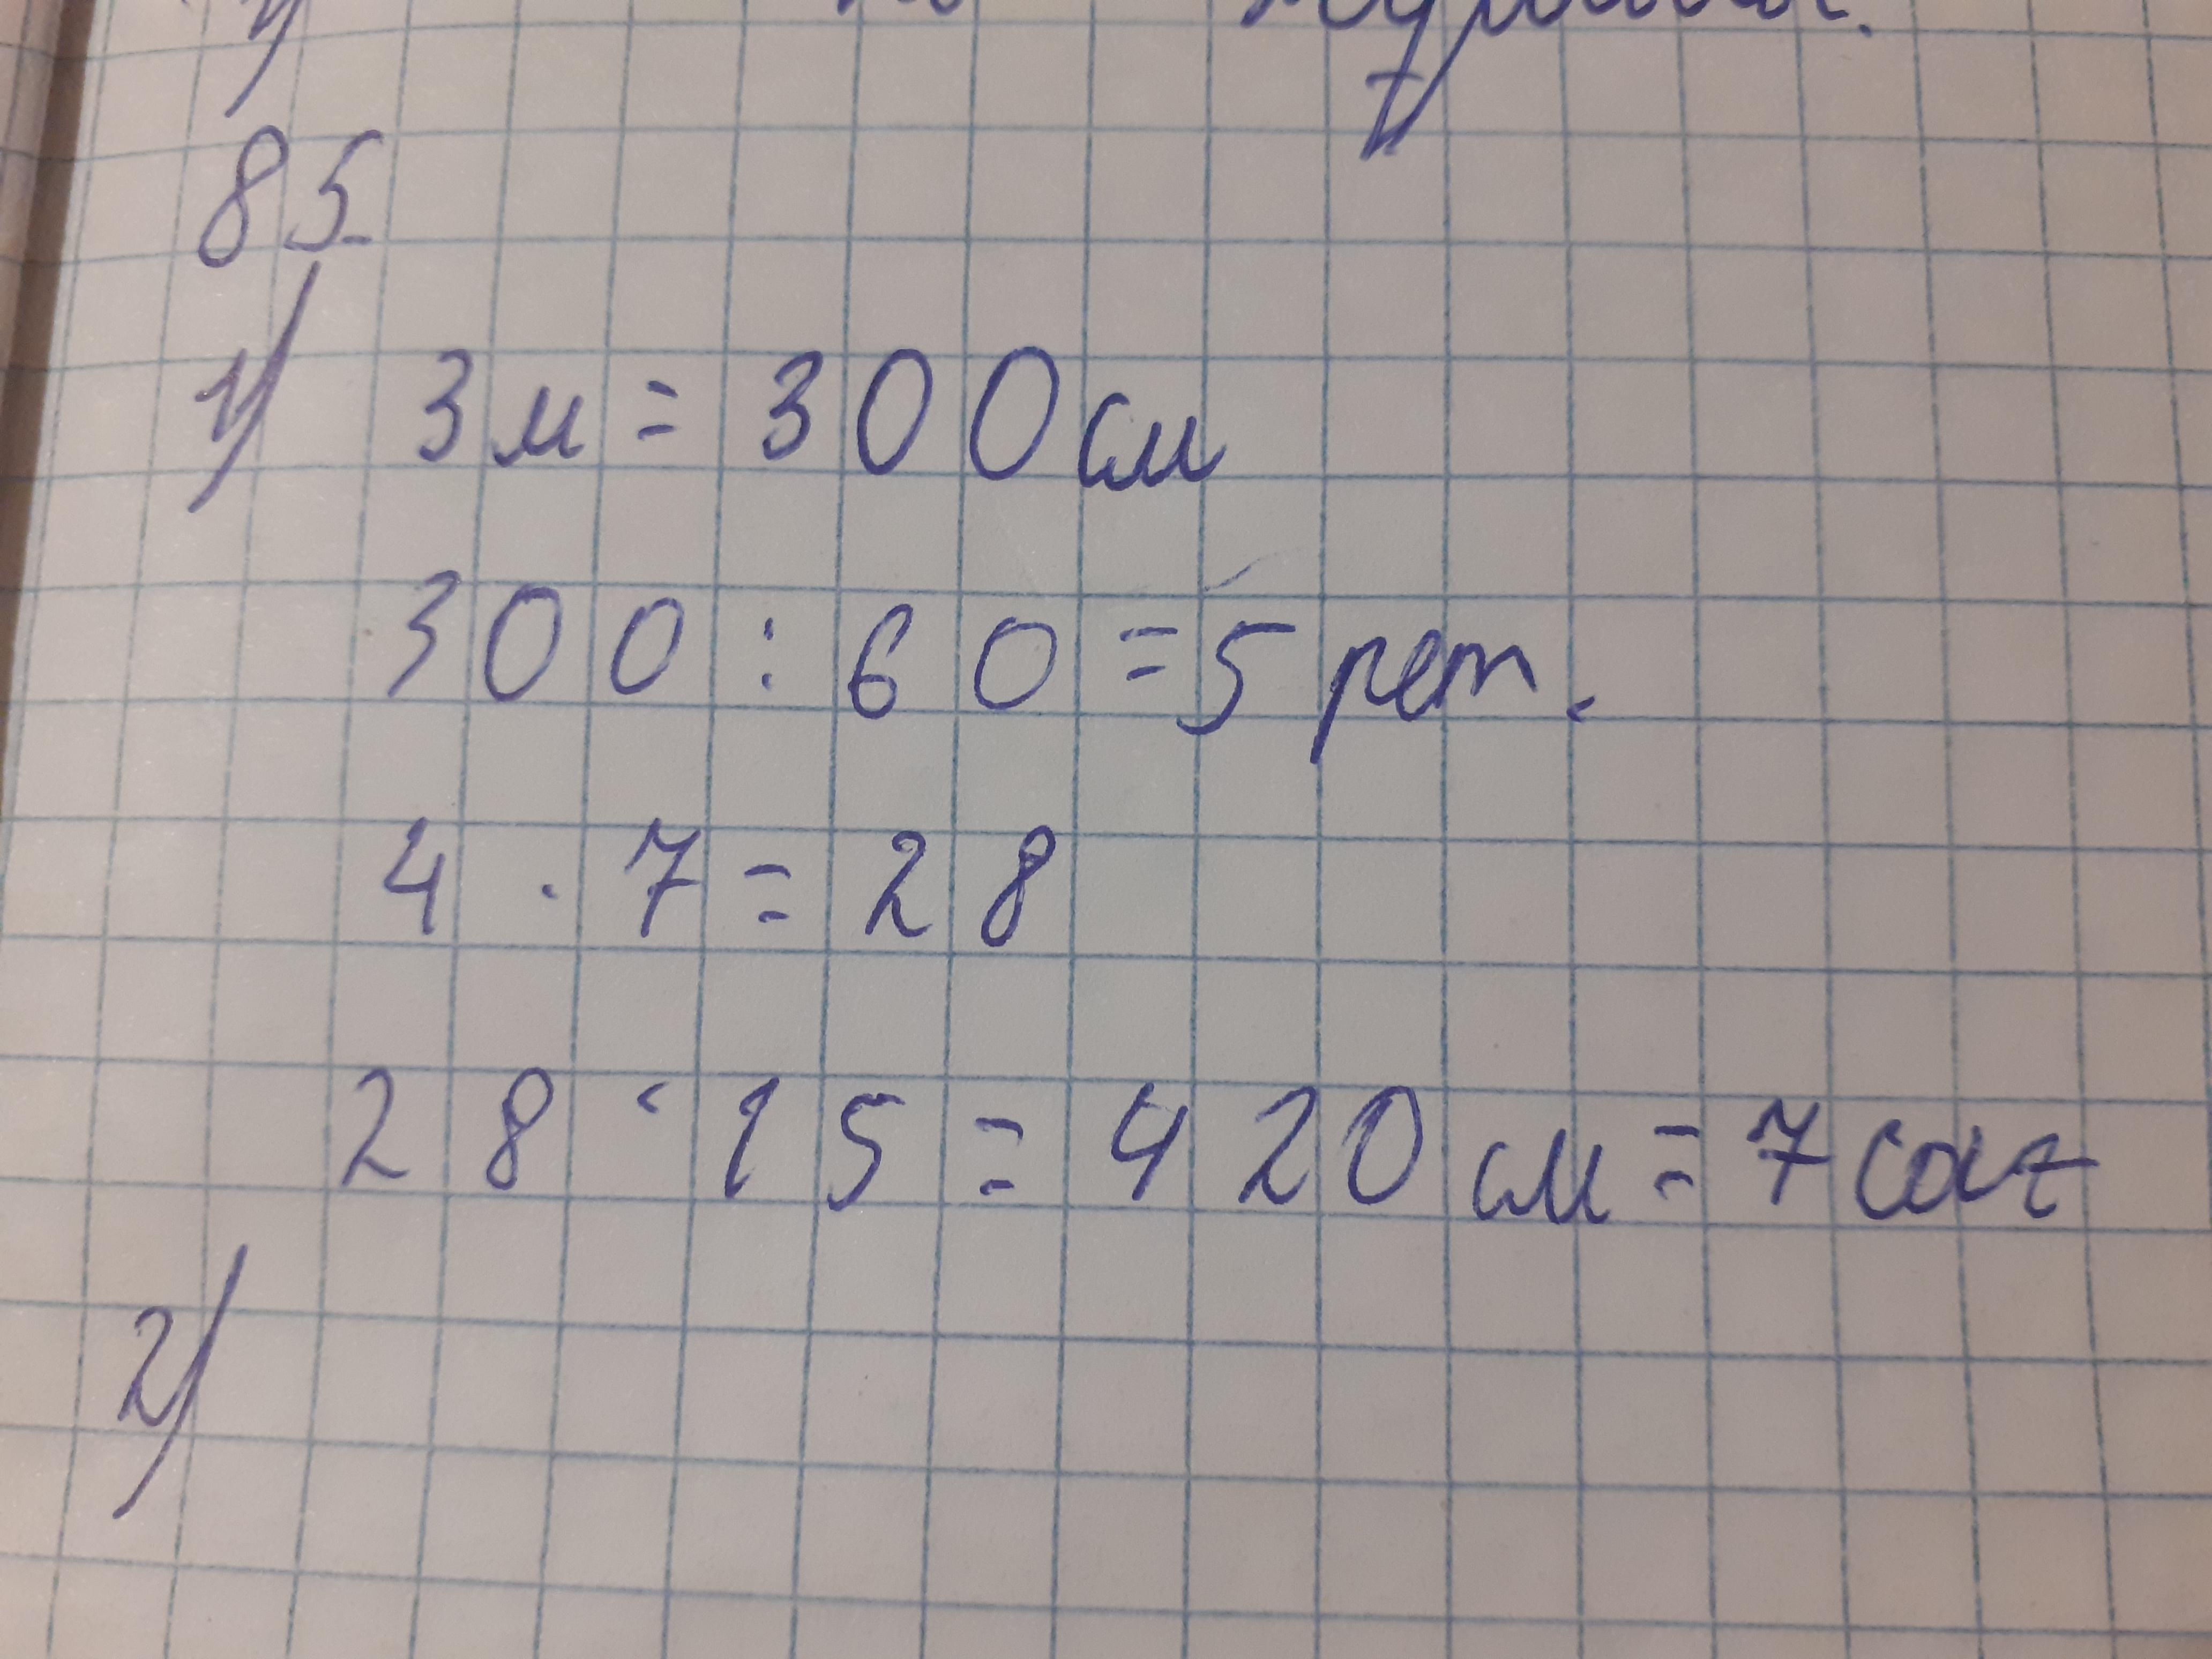 85
1) 3 м = 300 см
300 : 60 = 5 рет.
4 · 7 = 28
28 · 15 = 420 см = 7 сағ
2)